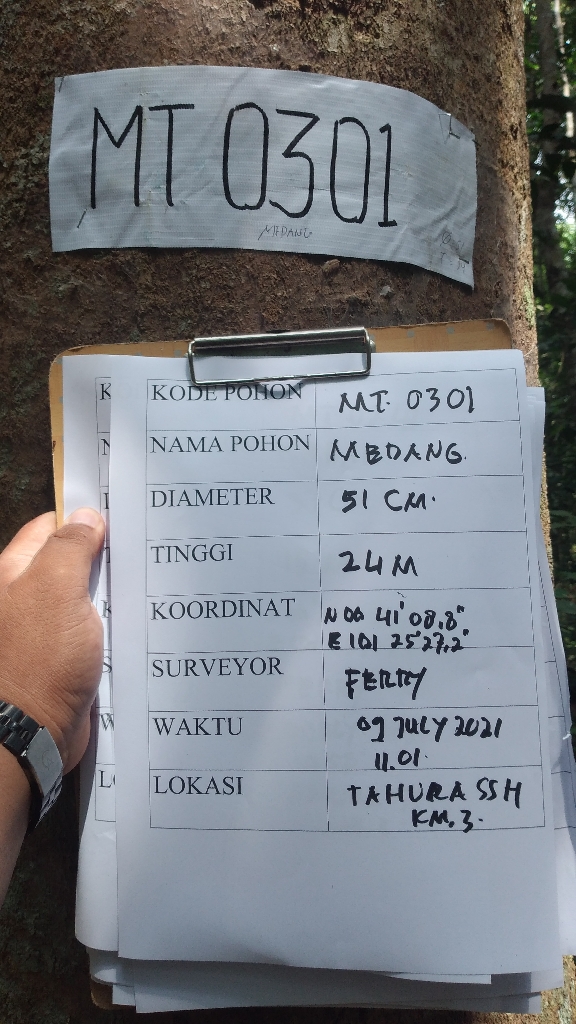 MT 0301
MEDANG
KODE POHON MT. 0301
NAMA POHON MEDANG.
DIAMETER 51 CM.
TINGGI 24 M
KOORDINAT N 00 41' 08,8"
E 101 25' 27,2"
SURVEYOR FERRY
WAKTU 09 JULY 2021
11.01.
LOKASI TAHURA SSH
KM.3.